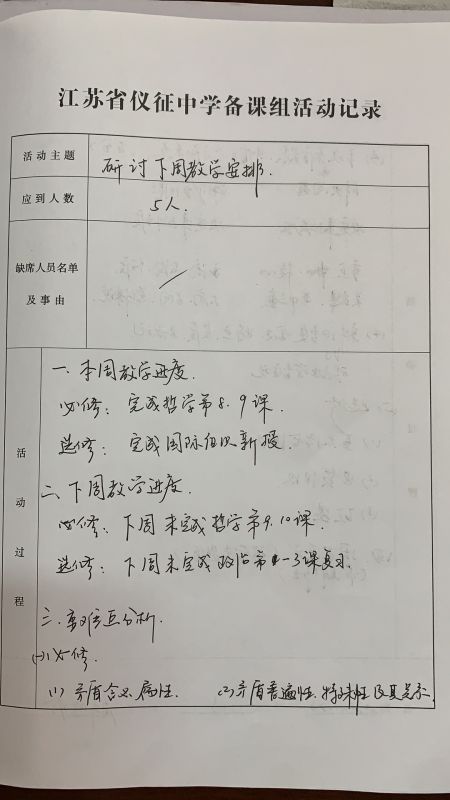 江苏省仪征中学备课组活动记录
活动主题
研讨下周教学安排.
应到人数
5人.
缺席人员名单
及事由
活动过程
一. 本周教学进度.
必修: 完成哲学第8.9课.
选修: 完成国际组织新授.
二. 下周教学进度.
必修: 下周末完成哲学第9.10课.
选修: 下周末完成政治第1-3课复习.
三. 重难点分析.
(一) 必修.
(1) 矛盾含义 属性. (2) 矛盾普遍性. 特殊性及其关系.